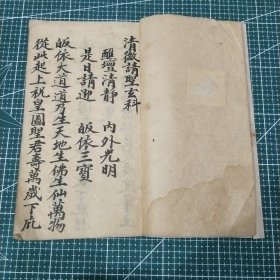 清微請聖玄科
醮壇清靜　內外光明
是日請迎　皈依三寶
皈依大道道乃生天地生佛生仙萬物
從此起上祝皇國聖君壽萬歲下庇